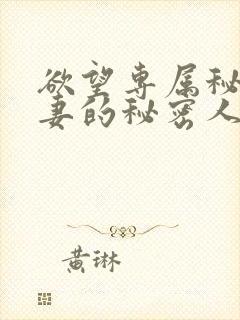 欲望专属秘
妻的秘密人
黄琳